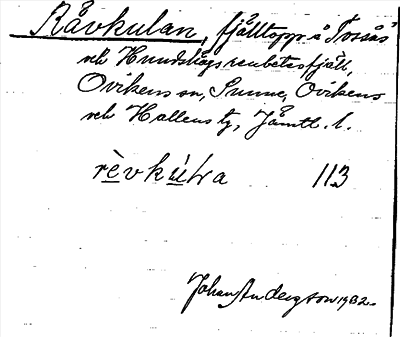 Råvkulan, fjälltopp å Tossås
och Hundshögs renbetesfjäll,
Ovikens sn, Sunne, Ovikens
och Hallens tg, Jämtl. l.
113
Johan Anderzson 1932.